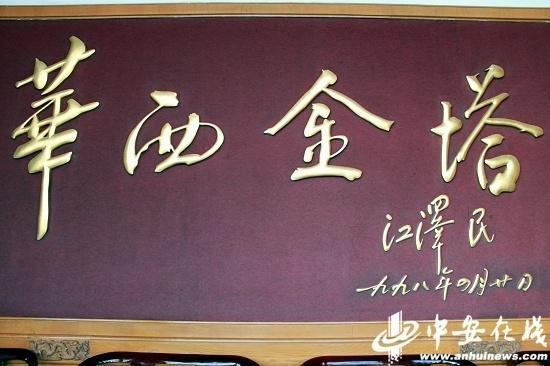 華西金塔
江澤民
一九九八年四月廿日
中安在线
www.anhuinews.com